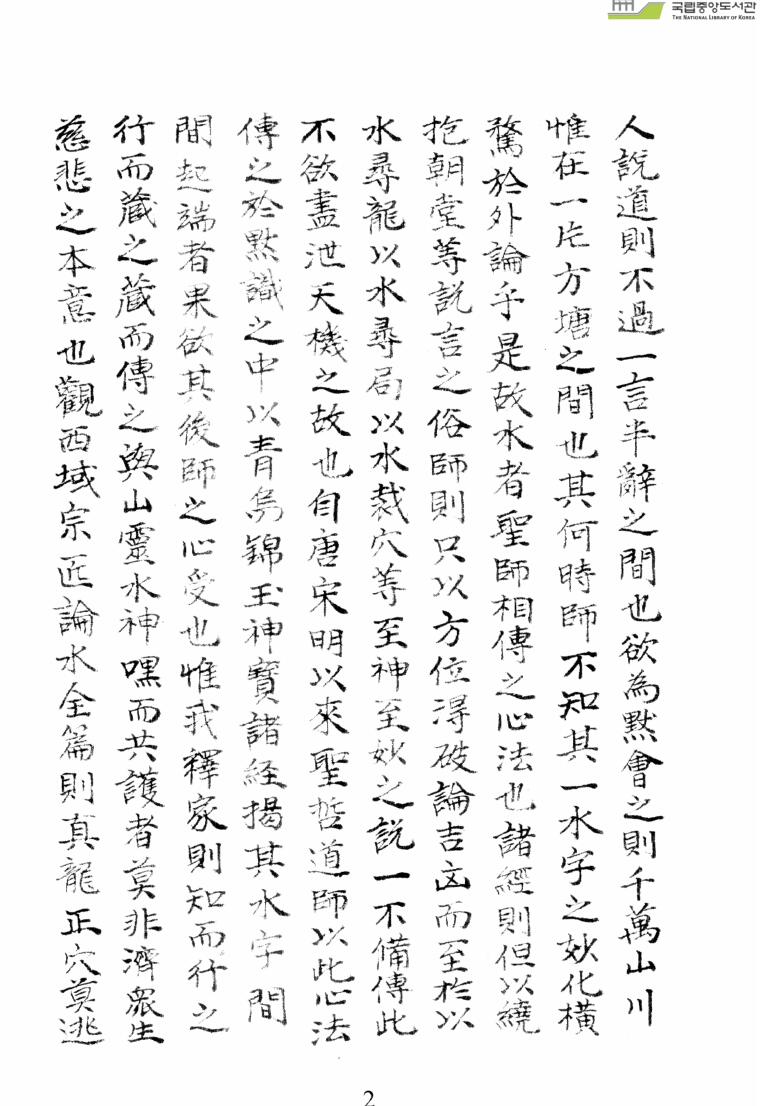 국립중앙도서관
THE NATIONAL LIBRARY OF KOREA
人說道則不過一言半辭之間也欲為黙會之則千萬山川
惟在一片方塘之間也其何時師不知其一水字之妙化橫
驁於外論乎是故水者聖師相傳之心法也諸經則但以繞
抱朝堂等說言之俗師則只以方位得破論吉凶而至於以
水尋龍以水尋局以水裁穴等至神至妙之說一不備傳此
不欲盡泄天機之故也自唐宋明以來聖哲道師以此心法
傳之於黙識之中以青烏錦玉神寶諸経揭其水字間
間起端者果欲其後師之心受也惟我釋家則知而行之
行而蔵之蔵而傳之與山靈水神嘿而共護者莫非濟衆生
慈悲之本意也觀西域宗匠論水全篇則真龍正穴莫逃
2